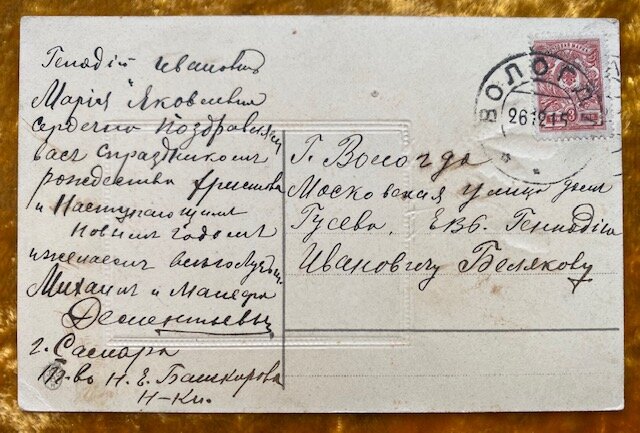 Генадій Ивановичъ
Марія Яковлевна
сердечно поздравляем
васъ спраздникомъ
рождества христова
и Наступающимъ
новымъ годомъ
ижелаемъ всего
Михаилъ и
Дементьевы
г. Самара
Т-во Н. Е. Башкирова
Н-ки.
ВОЛОГД
26 12 15
Г. Вологда
Московская улица домъ
Гусева, ЕВБ. Геннадію
Ивановичу Белякову